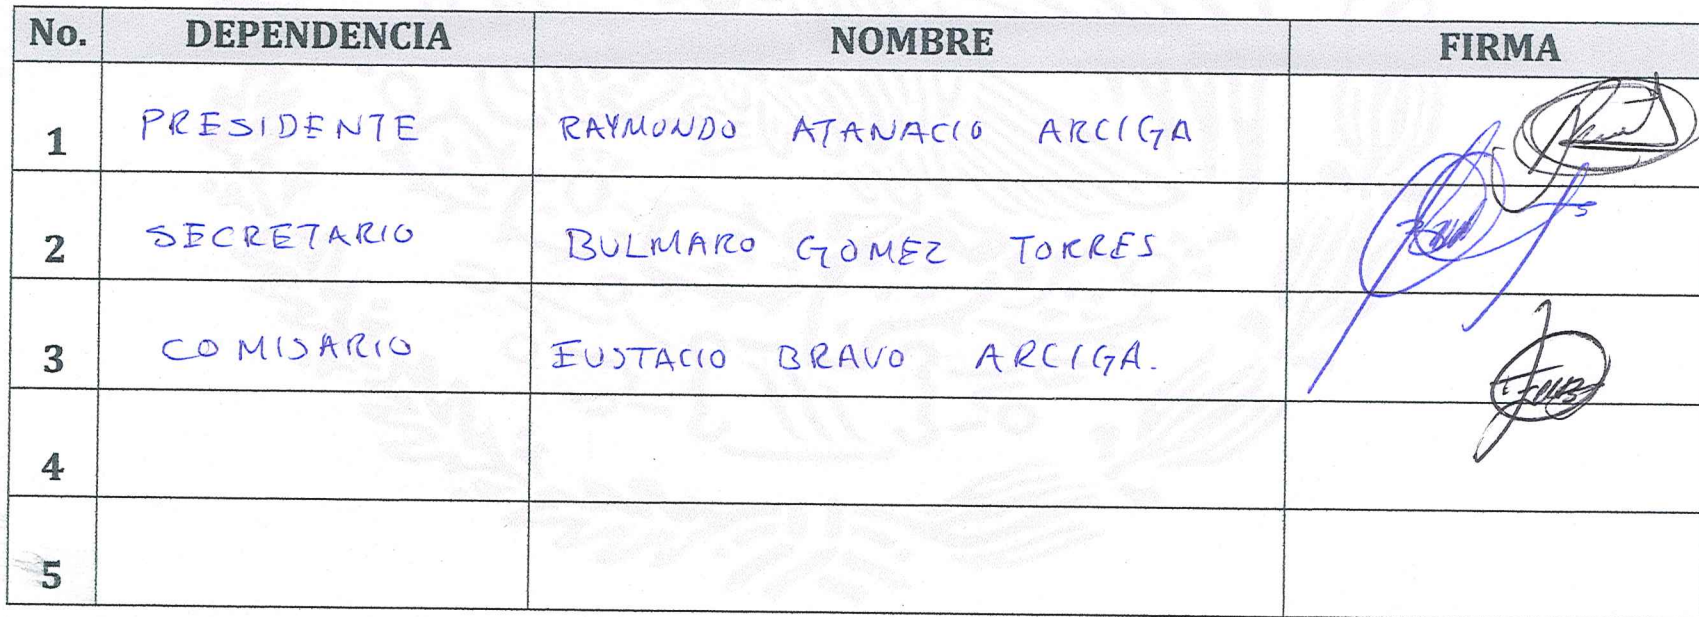 No. DEPENDENCIA NOMBRE FIRMA
1 PRESIDENTE RAYMUNDO ATANACIO ARCIGA
2 SECRETARIO BULMARO GOMEZ TORRES
3 COMISARIO EUSTACIO BRAVO ARCIGA.
4
5